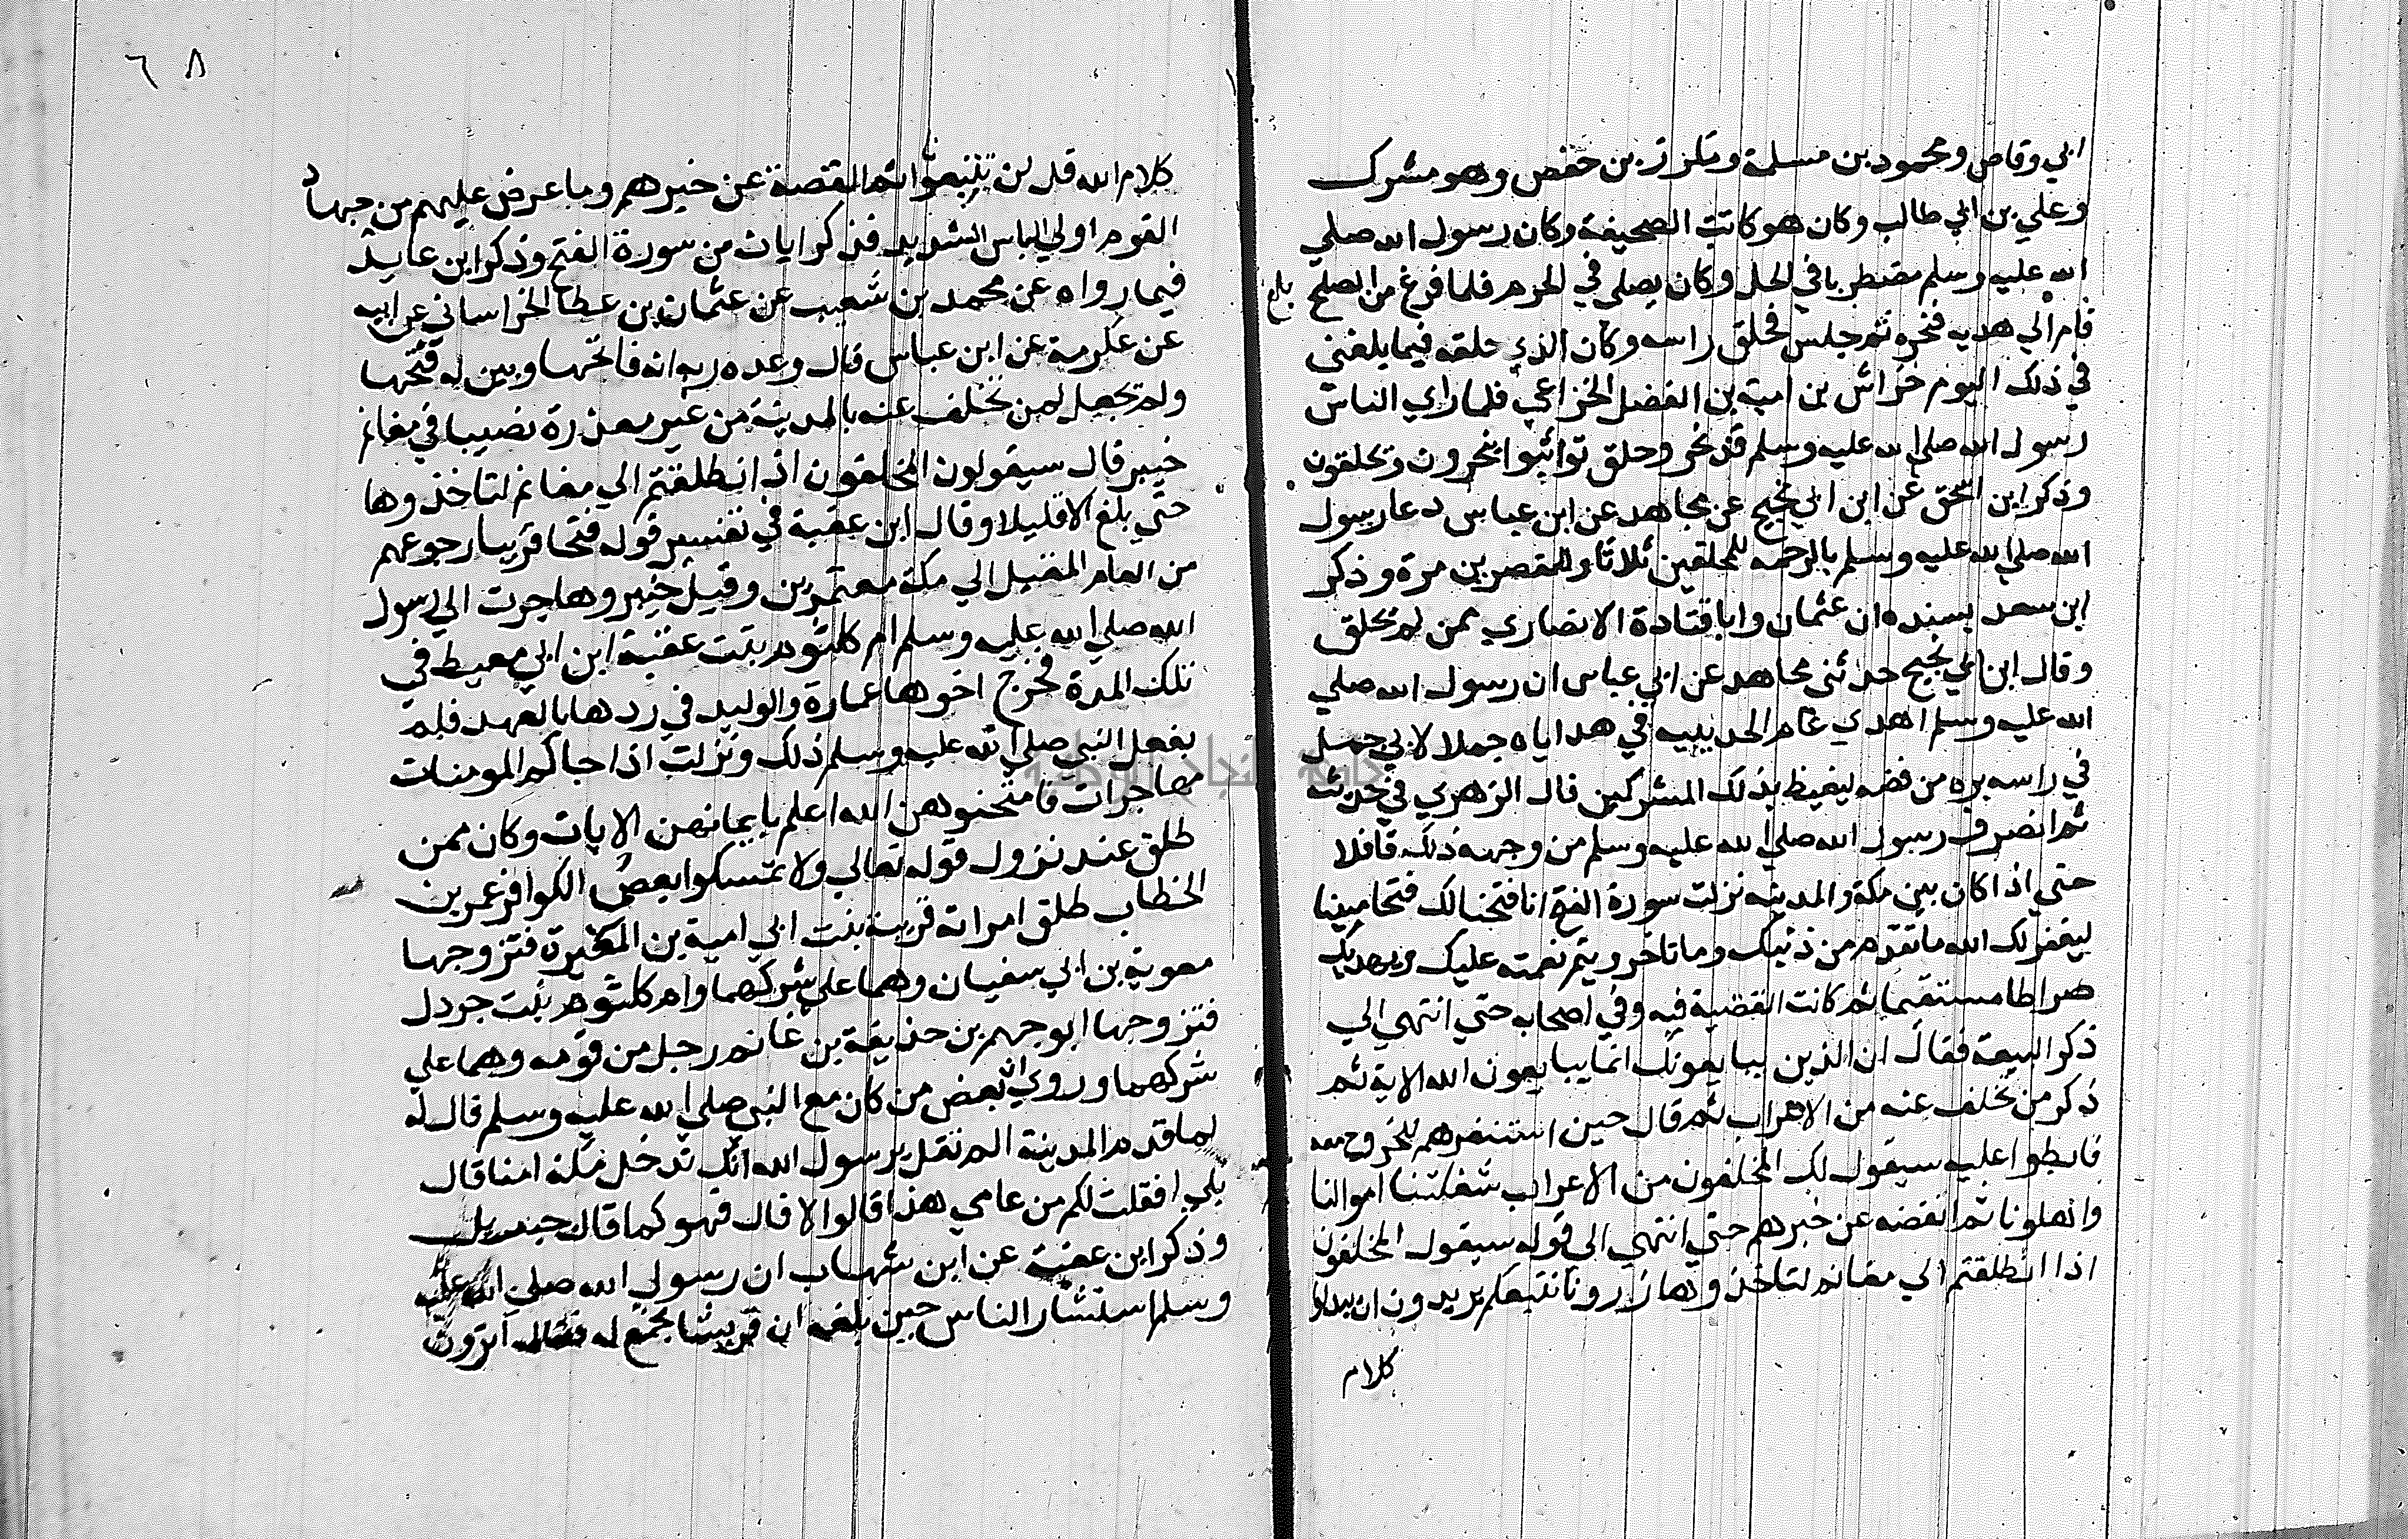 ابي وقاص ومحمود بن مسلمة ومكرز بن حفص وهو مشرك
وعلي بن ابي طالب وكان هو كاتب الصحيفة وكان رسول الله صلي
الله عليه وسلم مضطربا في الحل وكان يصلي في الحرم فلما فرغ من الصلح
بلغ
قام الي هديه فنحره ثم جلس فحلق راسه وكان الذي حلقه فيما بلغني
في ذلك اليوم خراش بن امية بن الفضل الخزاعي فلما راي الناس
رسول الله صلي الله عليه وسلم قد نحر وحلق تواثبوا ينحرون ويحلقون
وذكر ابن اسحق عن ابن ابي نجيح عن مجاهد عن ابن عباس دعا رسول
الله صلي الله عليه وسلم بالرحمه للمحلقين ثلاثا وللمقصرين مرة وذكر
ابن سعد بسنده ان عثمان وابا قتادة الانصاري ممن لم يحلق
وقال ابن ابي نجيح حدثني مجاهد عن ابي عباس ان رسول الله صلي
الله عليه وسلم اهدي عام الحديبيه في هداياه جملا لابي جهل
في راسه بره من فضه ليغيظ بذلك المشركين قال الزهري في حديثه
ثم انصرف رسول الله صلي الله عليه وسلم من وجهه ذلك قافلا
حتي اذا كان بين مكة والمدينه نزلت سورة الفتح انا فتحنا لك فتحا مبينا
ليغفر لك الله ما تقدم من ذنبك وما تاخر ويتم نعمته عليك ويهديك
صراطا مستقيما ثم كانت القضية فيه وفي اصحابه حتي انتهي الي
ذكر البيعة فقال ان الذين يبايعونك انما يبايعون الله الاية ثم
ذكر من تخلف عنه من الاعراب ثم قال حين استنفرهم للخروج معه
فابطوا عليه سيقول لك المخلفون من الاعراب شغلتنا اموالنا
واهلونا ثم القضه عن خبرهم حتي انتهي الي قوله سيقول المخلفون
اذا انطلقتم الي مغانم لتاخذوها ذرونا نتبعكم يريدون ان يبدلوا
كلام
٦٨
كلام الله قل لن تتبعوا ثم القصة عن خبرهم وما عرض عليهم من جهاد
القوم اولي الباس الشديد فذكر ايات من سورة الفتح وذكر ابن عايذ
فيما رواه عن محمد بن شعيب عن عثمان بن عطا الخراساني عن ابيه
عن عكرمة عن ابن عباس قال وعده ربه انه فاتحها وبين له فتحها
ولم يجعل لمن تخلف عنه بالمدينة من غير معذرة نصيبا في مغانم
خيبر قال سيقولون المخلفون اذا انطلقتم الي مغانم لتاخذوها
حتي بلغ الا قليلا وقال ابن عقبة في تفسير قوله فتحا قريبا رجوعهم
من العام المقبل الي مكة معتمرين وقيل خيبر وهاجرت الي رسول
الله صلي الله عليه وسلم ام كلثوم بنت عقبة ابن ابي معيط في
تلك المدة فخرج اخوها عمارة والوليد في ردها بالعهد فلم
يفعل النبي صلي الله عليه وسلم ذلك ونزلت اذا جاكم المومنات
مهاجرات فامتحنوهن الله اعلم بايمانهن الايات وكان ممن
طلق عند نزول قوله تعالي ولا تمسكوا بعصم الكوافر عمر بن
الخطاب طلق امراته قريبة بنت ابي امية بن المغيرة فتزوجها
معوية بن ابي سفيان وهما علي شركهما وام كلثوم بنت جردل
فتزوجها ابو جهم بن حذيفة بن غانم رجل من قومه وهما علي
شركهما وروي ان بعض من كان مع النبي صلي الله عليه وسلم قال له
لما قدم المدينة الم تقل يرسول الله انك تدخل مكة امنا قال
بلي افقلت لكم من عامي هذا قالوا لا قال فهو كما قال جبريل
وذكر ابن عقبة عن ابن شهاب ان رسول الله صلي الله عليه
وسلم استشار الناس حين بلغه ان قريشا تجمع له فقال اترون